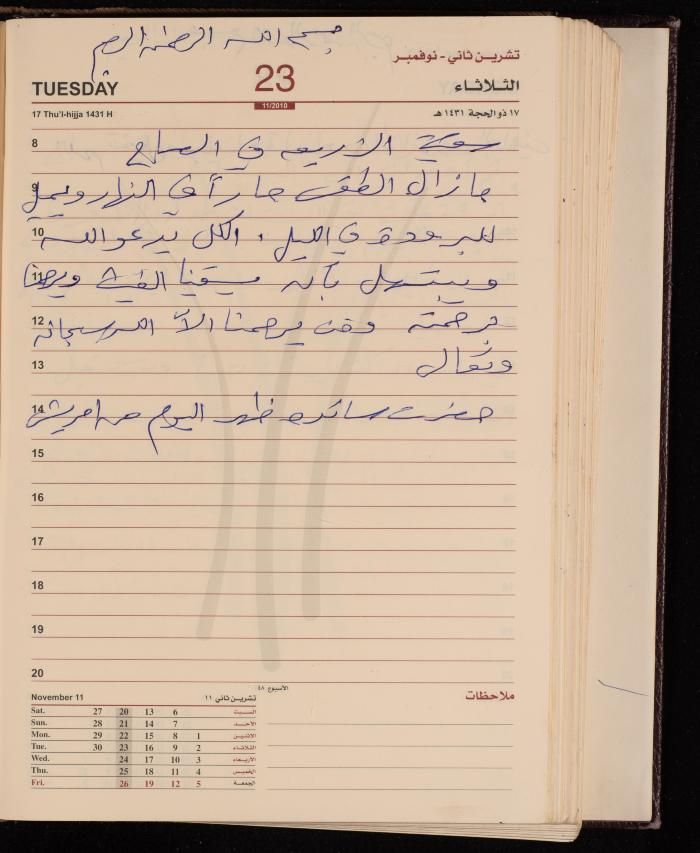 بسم الله الرحمن الرحيم
تشرين ثاني - نوفمبر
TUESDAY 23 الثلاثاء
11/2010
17 Thu'l-hijja 1431 H ١٧ ذو الحجة ١٤٣١ هـ
8 الاربعه في الصباح
9 مازال الطقس حاراً في النهار ويميل
10 للبرودة في الليل ، الكل يدعو الله
11 ويبتهل بأنه يسقينا الغيث ويرحمنا
12 برحمته ومن يرحمنا الا الله سبحانه
13 وتعالى
14 حضرت ساكده ظهر اليوم من
15
16
17
18
19
20
الأسبوع ٤٨
November 11 تشرين ثاني ١١
ملاحظات
Sat. 27 20 13 6 السبت
Sun. 28 21 14 7 الأحد
Mon. 29 22 15 8 1 الاثنين
Tue. 30 23 16 9 2 الثلاثاء
Wed. 24 17 10 3 الأربعاء
Thu. 25 18 11 4 الخميس
Fri. 26 19 12 5 الجمعة